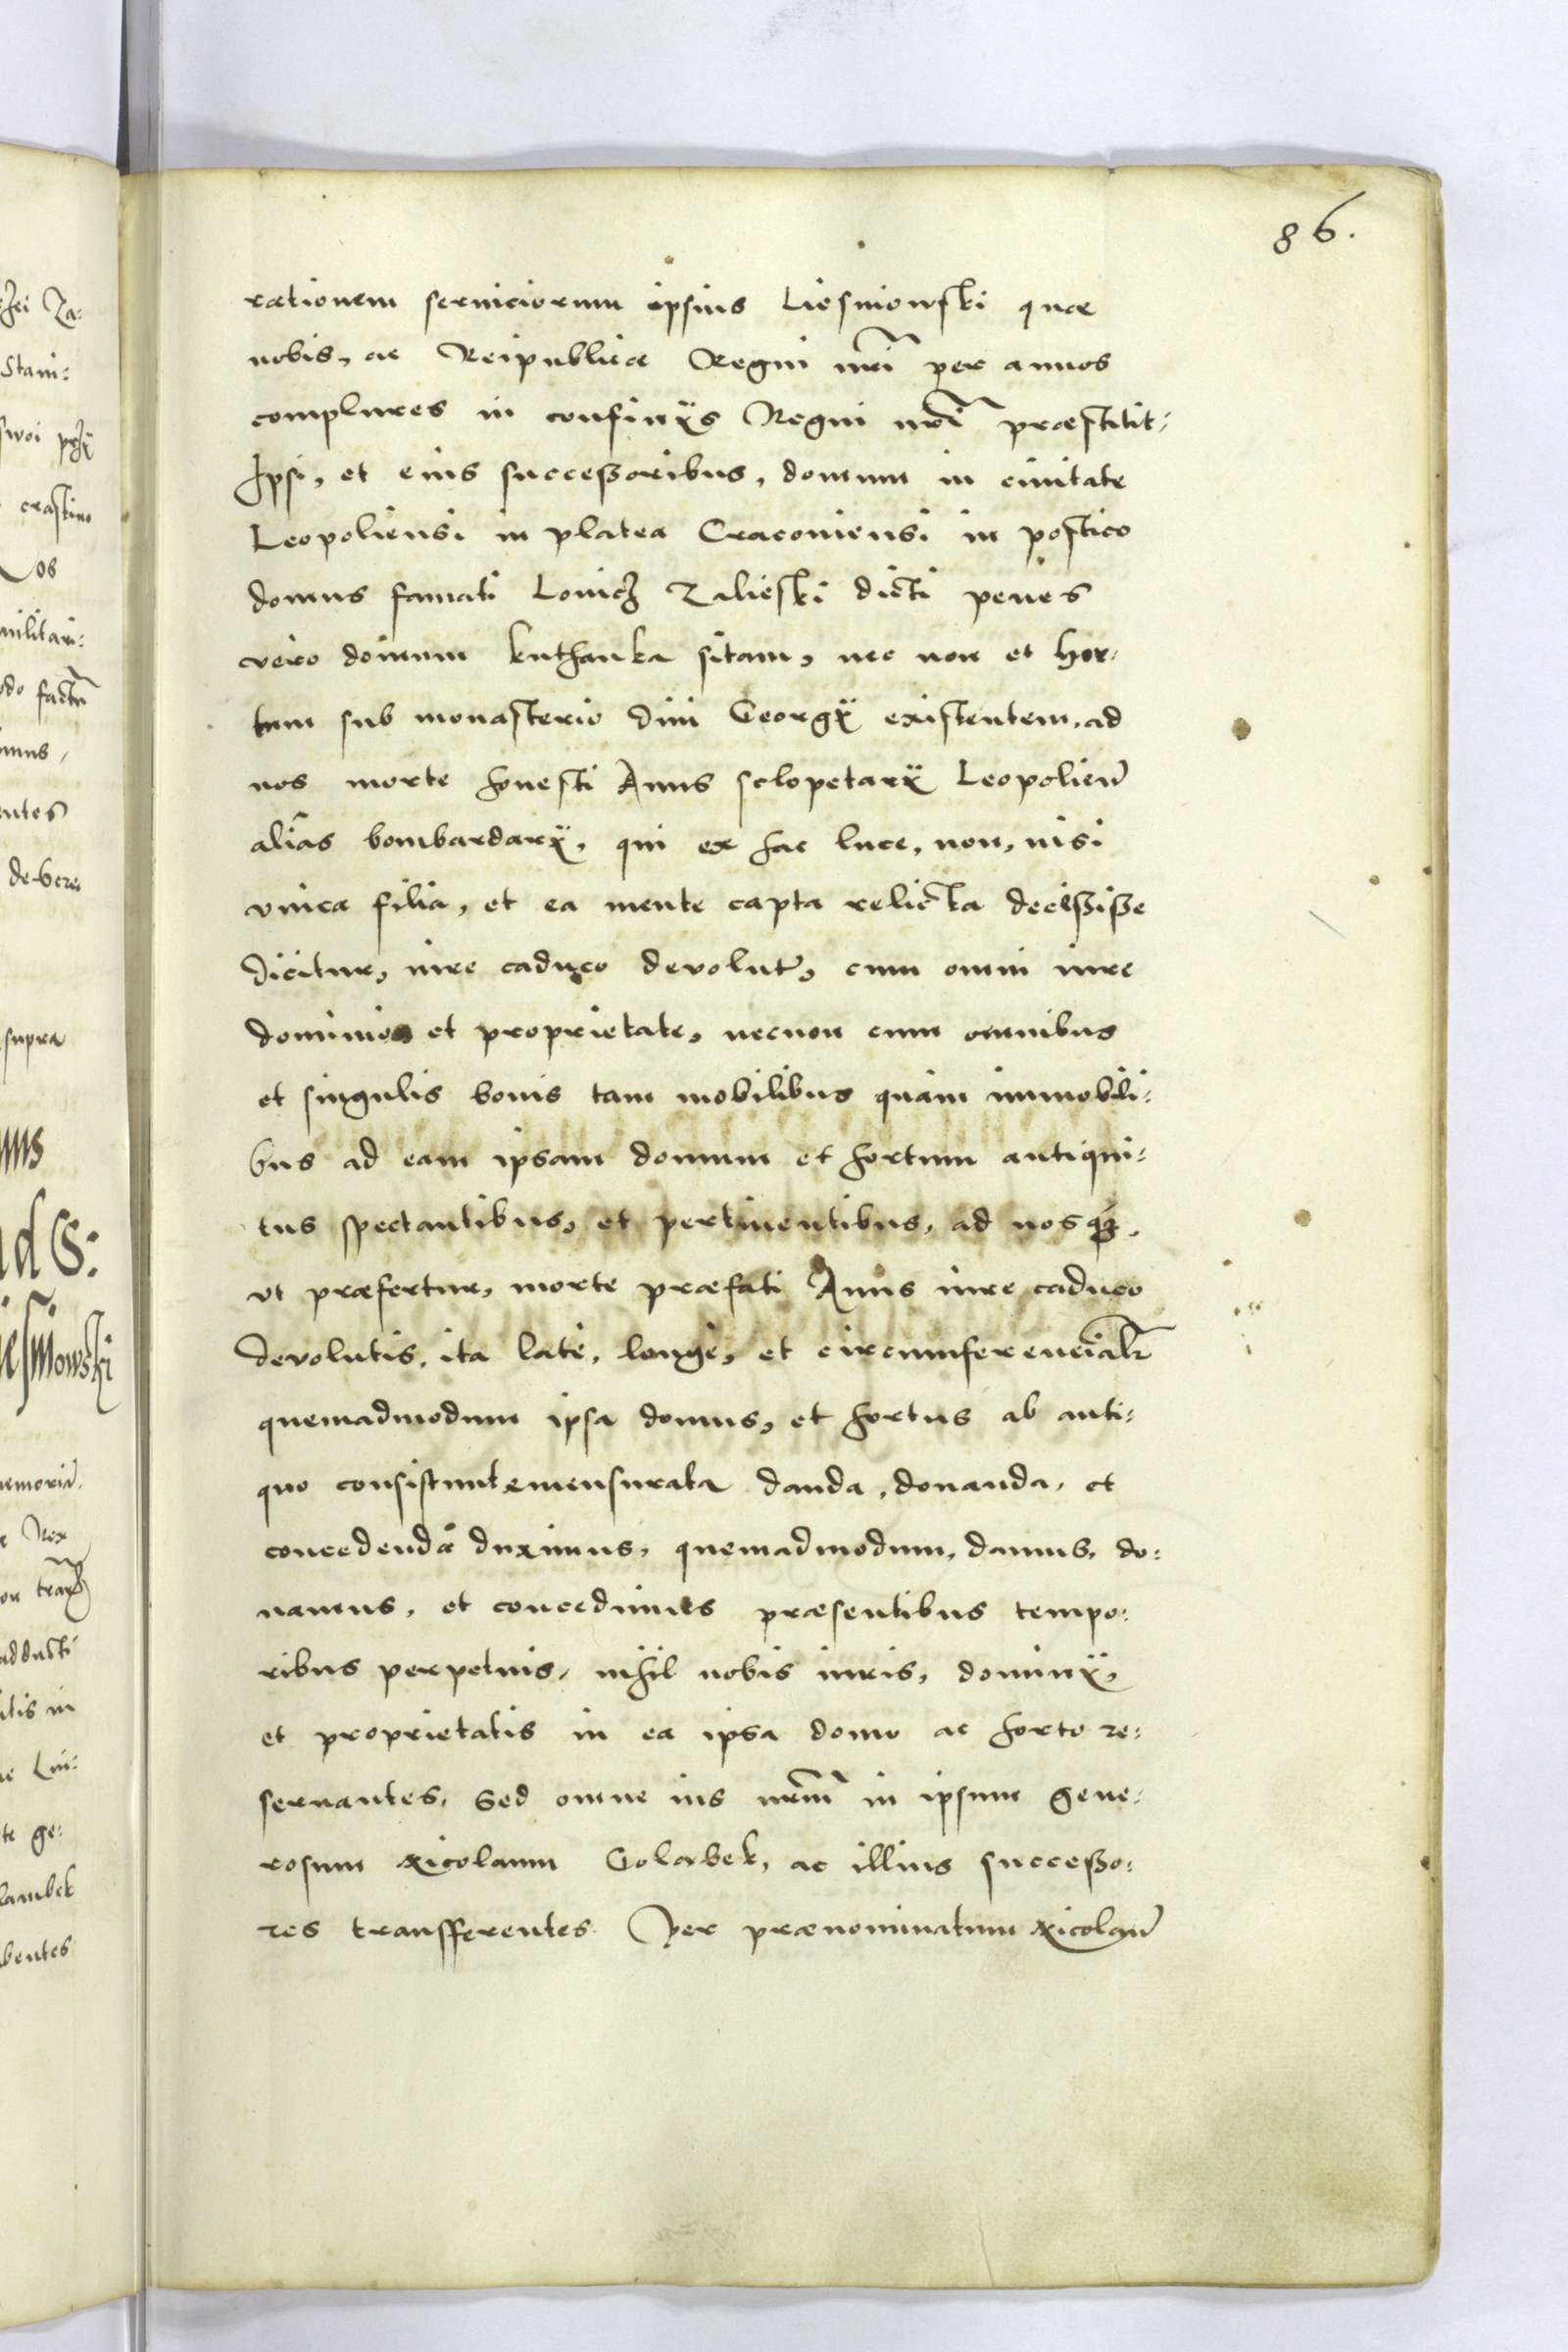 86.
rationem seruiciorum ipsius Liesniowski quae
nobis, ac Reipublicae Regni nrĩ per annos
complures in confinijs Regni nrĩ praestitit,
Ipsi, et eius successoribus, domum in ciuitate
Leopoliensi in platea Cracouiensi in postico
domus famati Louicz Zalieski dicti penes
vero domum kuthanka sitam, nec non et hor:
tum sub monasterio diui Georgij existentem, ad
nos morte honesti Anus sclopetarij Leopolien̄
alias bombardarij, qui ex hac luce, non, nisi
vnica filia, et ea mente capta relicta decessisse
dicitur, iure caduco devolut̃, cum omni iure
dominio et proprietate, necnon cum omnibus
et singulis bonis tam mobilibus quàm immobili:
bus ad eam ipsam domum et hortum antiqui:
tus spectantibus, et pertinentibus, ad nosq3,
vt praefertur, morte praefati Anus iure caduco
devolutis, ita latè, longè, et circumferencialr̃
quemadmodum ipsa domus, et hortus ab anti:
quo consistunt emensurata danda, donanda, et
concedenda duximus, quemadmodum, damus, do:
namus, et concedimus praesentibus tempo:
ribus perpetuis, nihil nobis iuris, dominij,
et proprietatis in ea ipsa domo ac horto re:
seruantes, Sed omne ius nrm̃ in ipsum gene:
rosum Nicolaum Golabek, ac illius successo:
res transfferentes. Per praenominatum Nicolaū